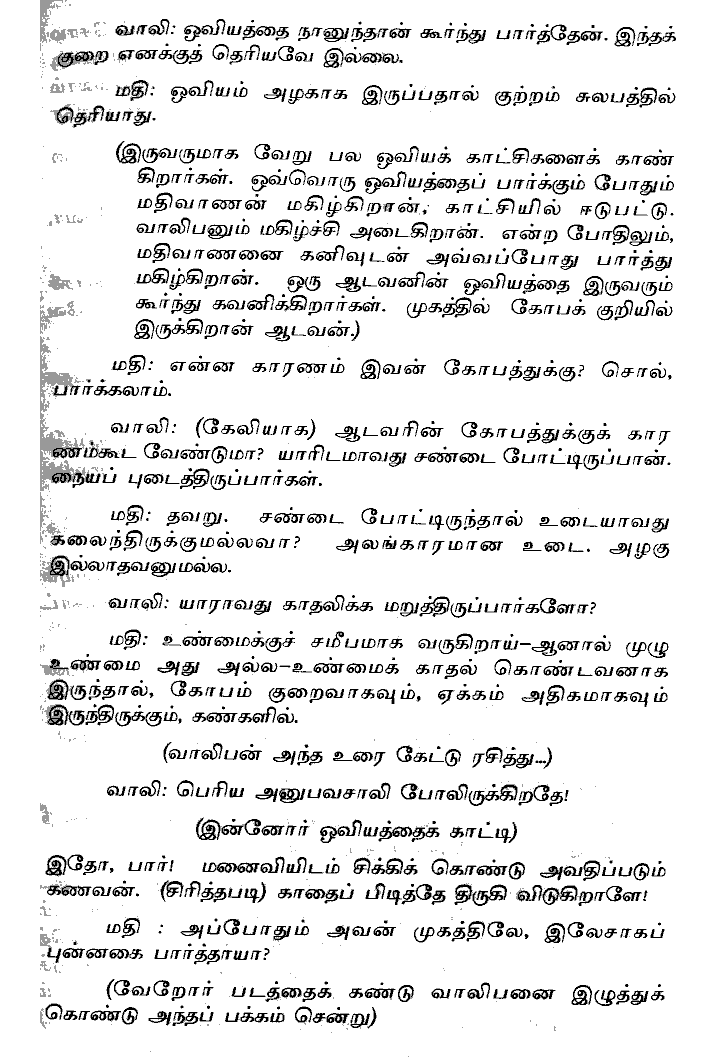 வாலி: ஓவியத்தை நானுந்தான் கூர்ந்து பார்த்தேன். இந்தக்
குறை எனக்குத் தெரியவே இல்லை.
மதி: ஓவியம் அழகாக இருப்பதால் குற்றம் சுலபத்தில்
தெரியாது.
(இருவருமாக வேறு பல ஓவியக் காட்சிகளைக் காண்
கிறார்கள். ஒவ்வொரு ஓவியத்தைப் பார்க்கும் போதும்
மதிவாணன் மகிழ்கிறான், காட்சியில் ஈடுபட்டு.
வாலிபனும் மகிழ்ச்சி அடைகிறான். என்ற போதிலும்,
மதிவாணனை கனிவுடன் அவ்வப்போது பார்த்து
மகிழ்கிறான். ஒரு ஆடவனின் ஓவியத்தை இருவரும்
கூர்ந்து கவனிக்கிறார்கள். முகத்தில் கோபக் குறியில்
இருக்கிறான் ஆடவன்.)
மதி: என்ன காரணம் இவன் கோபத்துக்கு? சொல்,
பார்க்கலாம்.
வாலி: (கேலியாக) ஆடவரின் கோபத்துக்குக் கார
ணம்கூட வேண்டுமா? யாரிடமாவது சண்டை போட்டிருப்பான்.
நையப் புடைத்திருப்பார்கள்.
மதி: தவறு. சண்டை போட்டிருந்தால் உடையாவது
கலைந்திருக்குமல்லவா? அலங்காரமான உடை. அழகு
இல்லாதவனுமல்ல.
வாலி: யாராவது காதலிக்க மறுத்திருப்பார்களோ?
மதி: உண்மைக்குச் சமீபமாக வருகிறாய்–ஆனால் முழு
உண்மை அது அல்ல–உண்மைக் காதல் கொண்டவனாக
இருந்தால், கோபம் குறைவாகவும், ஏக்கம் அதிகமாகவும்
இருந்திருக்கும், கண்களில்.
(வாலிபன் அந்த உரை கேட்டு ரசித்து...)
வாலி: பெரிய அனுபவசாலி போலிருக்கிறதே!
(இன்னோர் ஓவியத்தைக் காட்டி)
இதோ, பார்! மனைவியிடம் சிக்கிக் கொண்டு அவதிப்படும்
கணவன். (சிரித்தபடி) காதைப் பிடித்தே திருகி விடுகிறாளே!
மதி : அப்போதும் அவன் முகத்திலே, இலேசாகப்
புன்னகை பார்த்தாயா?
(வேறோர் படத்தைக் கண்டு வாலிபனை இழுத்துக்
கொண்டு அந்தப் பக்கம் சென்று)